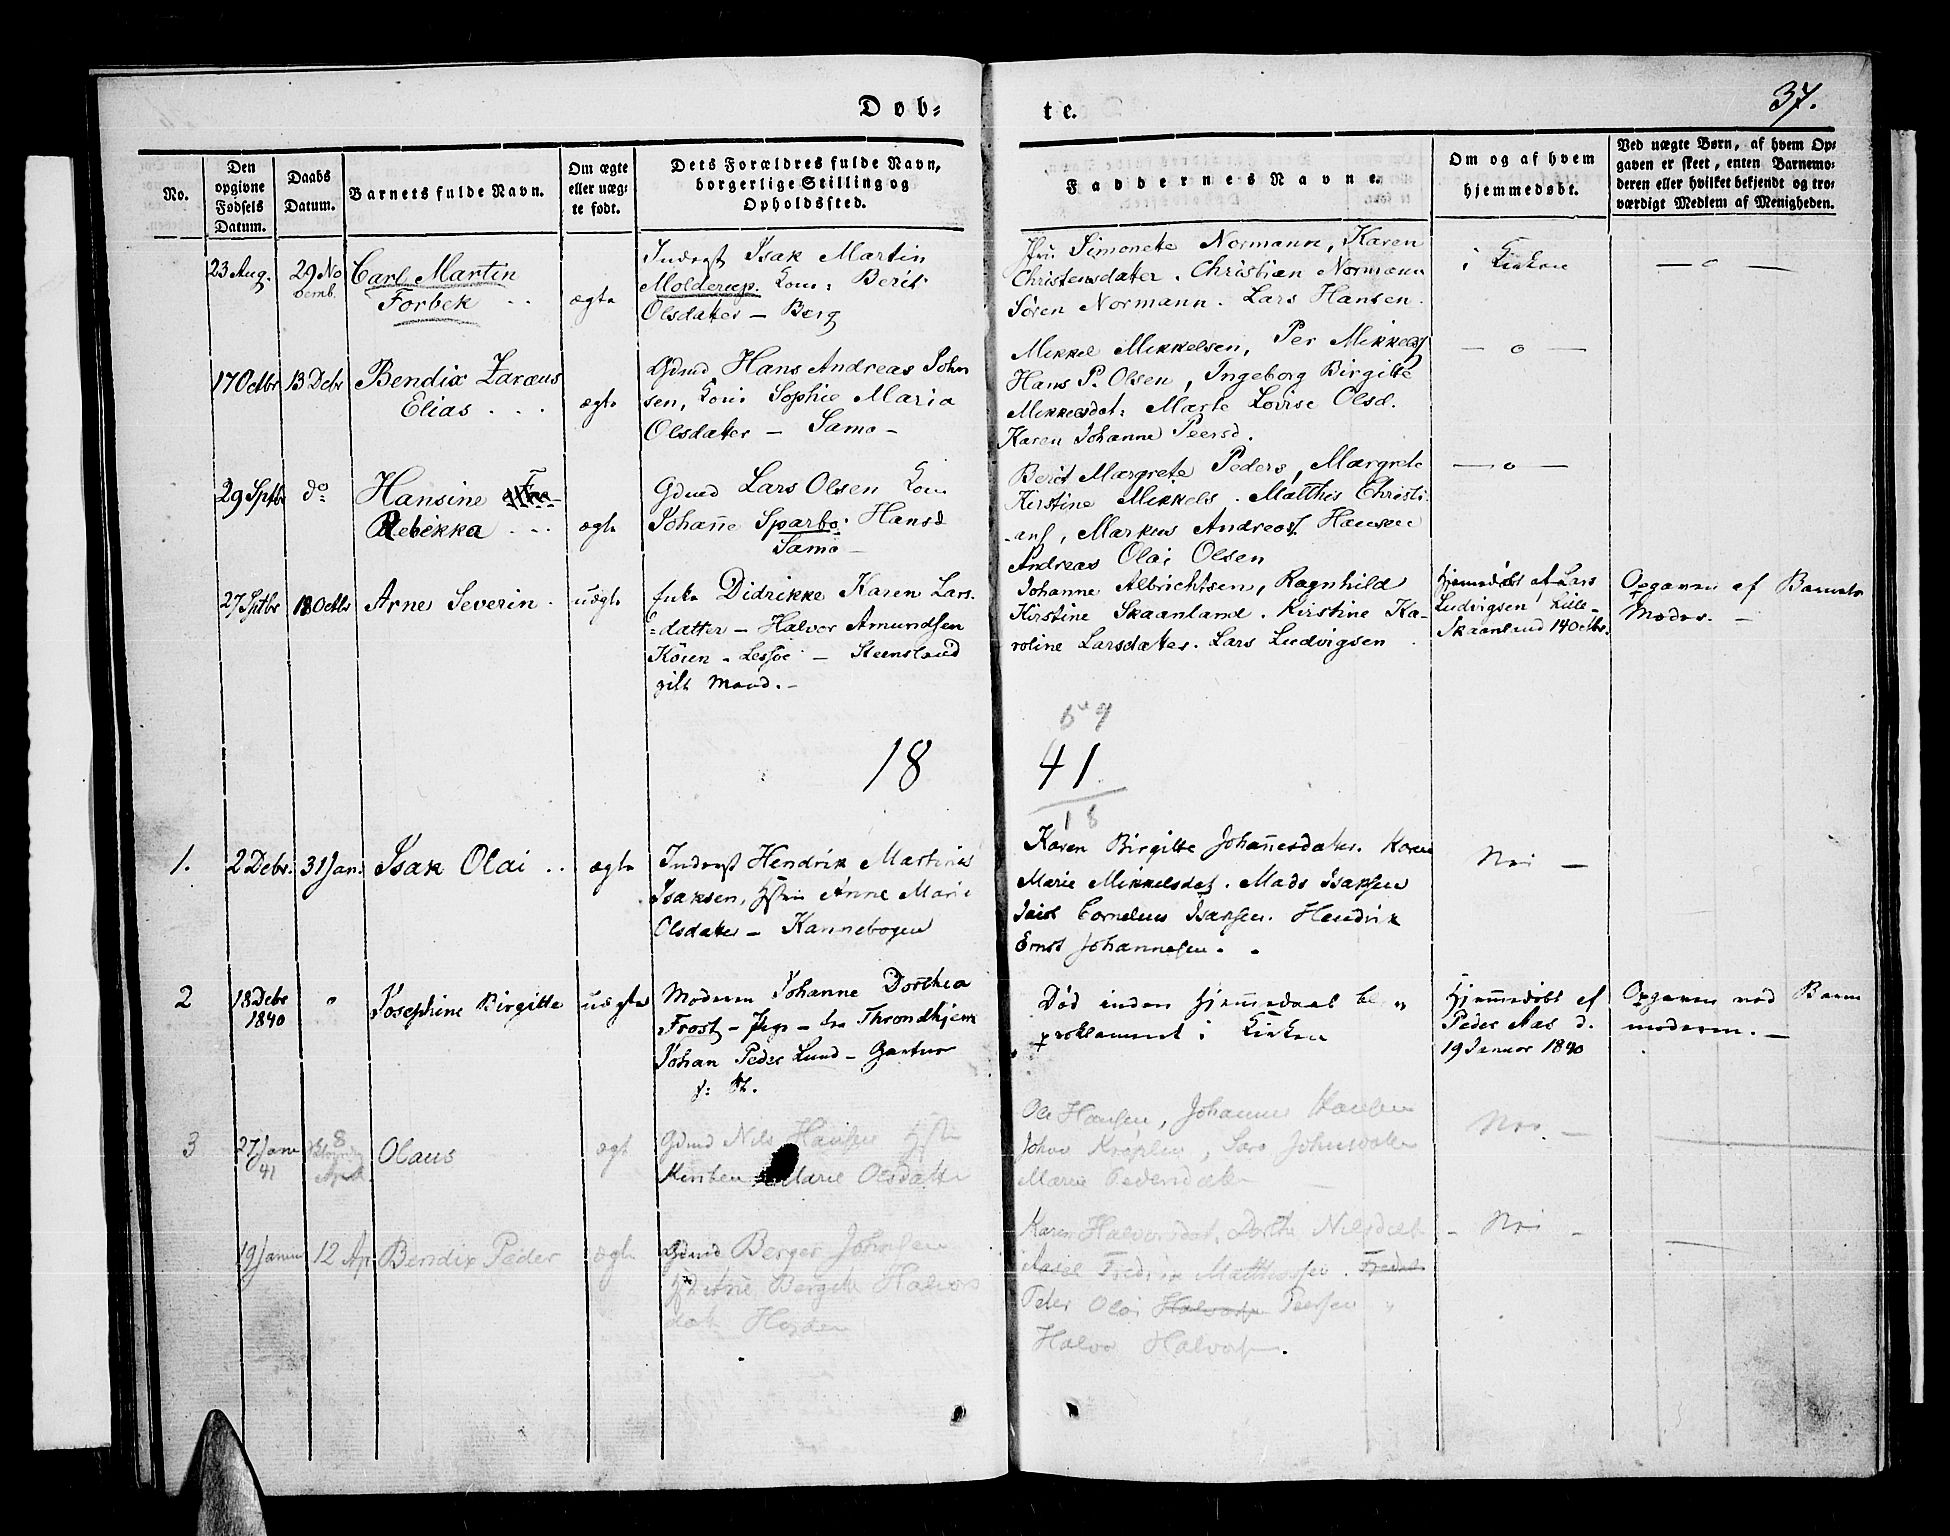 Døb-
te.
37.
No.
Den opgivne Fødsels Datum.
Daabs Datum.
Barnets fulde Navn.
Om ægte eller uæg-
te født.
Dets Forældres fulde Navn,
borgerlige Stilling og
Opholdssted.
Faddernes Navne.
Om og af hvem
hjemmedøbt.
Ved uægte Børn, af hvem Op-
gaven er skeet, enten Barnemo-
deren eller hvilket bekjendt og tro-
værdigt Medlem af Menigheden.
23 Aug.
29 No
vemb.
Carl Martin
Forbek
ægte
Inderst Isak Martin
Molderup. Kone: Berit
Olsdatter - Berg
Jfru Simonete Normann, Karen
Christensdatter. Christian Normann
Søren Normann. Lars Hansen.
i Kirken
- o -
17 Octbr
13 Debr
Bendix Zaræus
Elias
ægte
Gdmd Hans Andreas John
sen, Kone Sophie Maria
Olsdatter - Samo -
Mikkel Mikkelsen, Per Mikkels
Hans P. Olsen, Ingeborg Birgitte
Mikkelsdat: Marte Lovise Olsd.
Karen Johanne Peersd.
- o -
29 Sptbr
do
Hansine
Rebekka
ægte
Gdmd Lars Olsen Kone
Johanne Sparbo: Hansd
Samo -
Berit Margrete Peders, Margrete
Kirstine Mikkels. Matthis Christi-
ans, Markus Andreas Hansen
Andreas Olai Olsen
- o -
27 Sptbr
18 Octbr
Arne Severin
uægte
Enke Didrikke Karen Lars-
datter - Halvor Amundsen
Steensland
gift Mand. -
Johanne Albrichtsen, Ragnhild
Kirstine Skaanland. Kirstine Ka-
roline Larsdatter. Lars Ludvigsen
Hjemmedøbt af Lars
Ludvigsen Lille-
Skaanland 14 Octbr.
Opgaven af Barnets
Moder. -
18
41
18
1.
2 Debr.
31 Jan.
Isak Olai
ægte
Inderst Hendrik Martinus
Isaksen, Hstru Anne Marie
Olsdatter - Kannebogen
Karen Birgitte Johannesdatter. Karen
Marie Mikkelsdat. Mads Isaksen
Cornelius Isaksen. Hendrik
Ernst Johannesen.
Nei -
2
18 Debr
1840
o
Josephine Birgitte
uægte
Moderen Johanne Dorthea
Frost - Pige - fra Throndhjem
Johan Peder Lund - Gartner
Død inden Hjemmedaab be
proklameret i Kirken
Hjemmedøbt af
Peder Aas d.
19 Januar 1840
Opgaven ved Barne
moderen. -
3
27 Janu
41
8
Olaus
ægt
Gdmd Nils Hansen Hstru
Kirsten Marie Olsdatter
Ole Hansen, Johannes Hansen
Johan, Sara Johnsdatter
Marie Pedersdatter
Nei. -
19 Janu
12 Ap
Bendix Peder
ægte
Gdmd Berger Johnsen
Ane Bergite Halvors
dat
Karen Halvorsdat, Dorthe Nilsdat
Fredrik Matthiassen.
Peder Olai Peersen
Halvor Halvorsen.
- Nei -